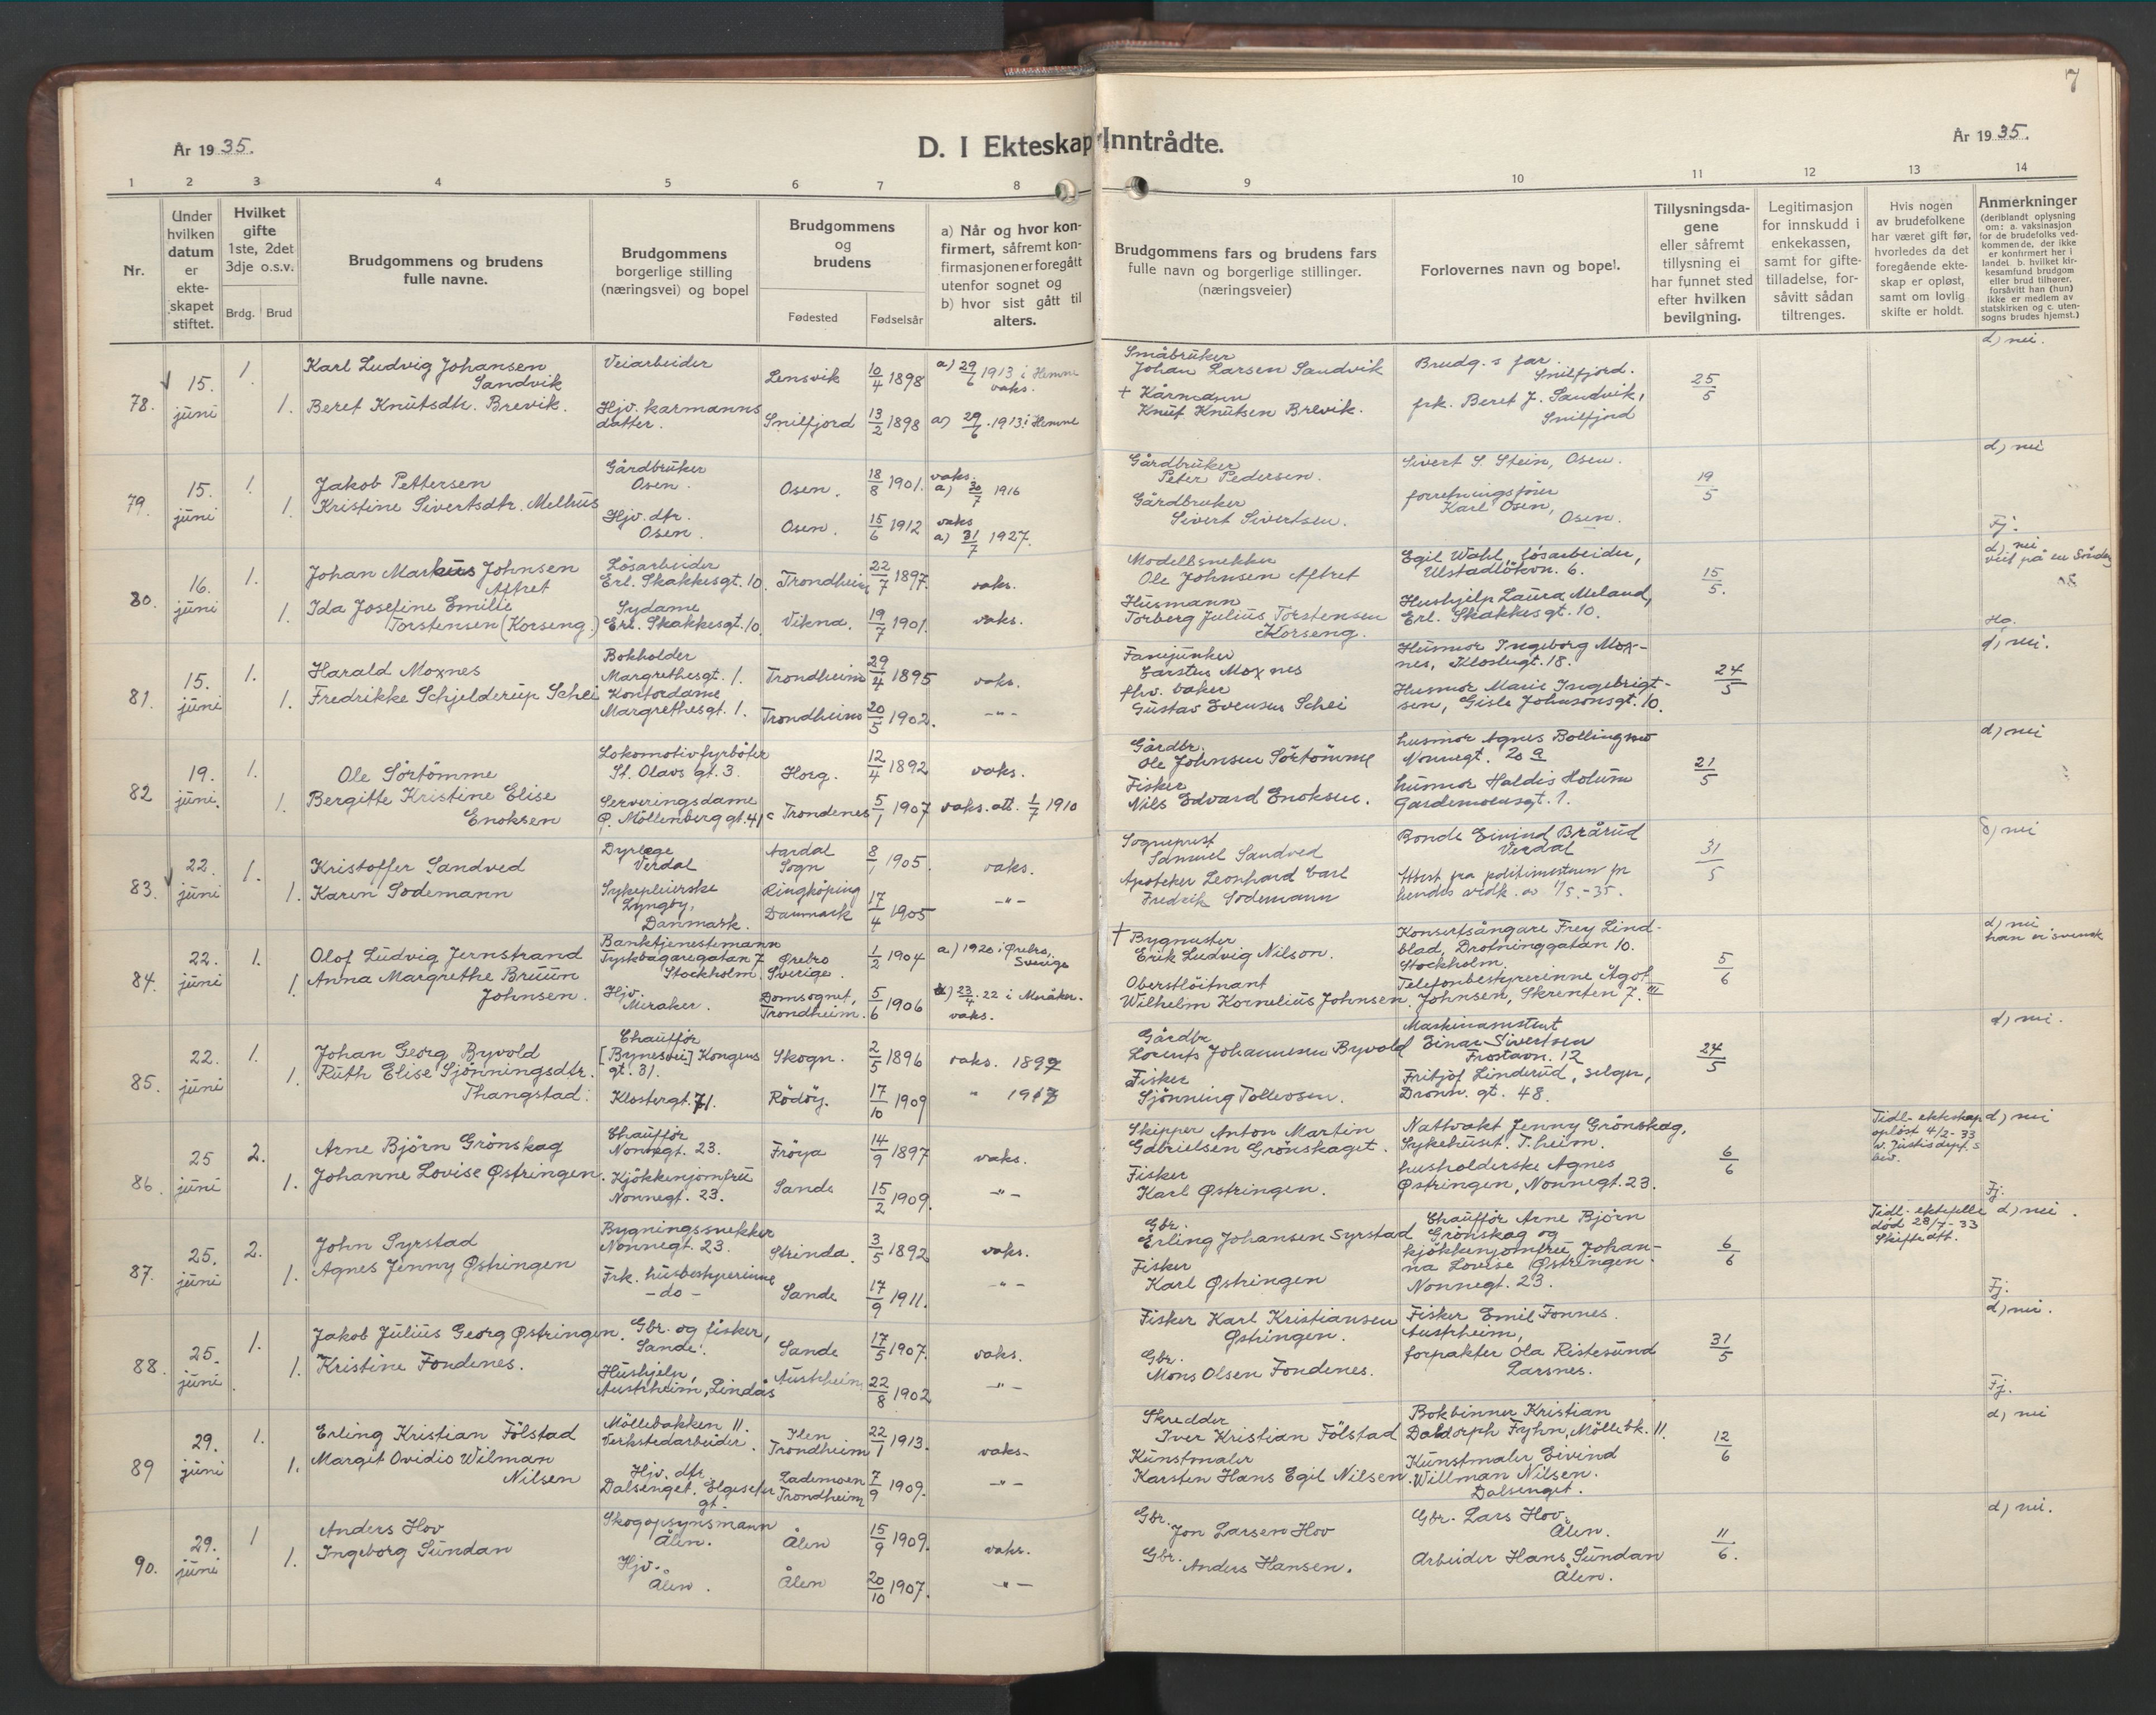 7
År 1935.
D. I Ekteskap Inntrådte.
År 1935.
1 2 3 4 5 6 7 8 9 10 11 12 13 14
Nr.
Under hvilken datum er ekteskapet stiftet.
Hvilket gifte 1ste, 2det 3dje o.s.v.
Brdg. Brud
Brudgommens og brudens fulle navne.
Brudgommens borgerlige stilling (næringsvei) og bopel
Brudgommens og brudens
Fødested Fødselsår
a) Når og hvor konfirmert, såfremt konfirmasjonen er foregått utenfor sognet og b) hvor sist gått til alters.
Brudgommens fars og brudens fars fulle navn og borgerlige stillinger. (næringsveier)
Forlovernes navn og bopel.
Tillysningsdagene eller såfremt tillysning ei har funnet sted efter hvilken bevilgning.
Legitimasjon for innskudd i enkekassen, samt for giftetilladelse, forsåvitt sådan tiltrenges.
Hvis nogen av brudefolkene har været gift før, hvorledes da det foregående ekteskap er opløst, samt om lovlig skifte er holdt.
Anmerkninger (deriblandt oplysning om: a. vaksinasjon for de brudefolks vedkommende, der ikke er konfirmert her i landet. b. hvilket kirkesamfund brudgom eller brud tilhører, forsåvitt han (hun) ikke er medlem av statskirken og c. utensogns brudes hjemst.)
78. 15. juni 1. 1.
Karl Ludvig Johansen Sandvik
Veiarbeider
Lensvik 10/4 1898 a) 29/6 1913 i Hemne vaks.
Beret Knutsdtr. Brevik.
Hjv. karmanns datter.
Snilfjord 13/2 1898 a) 29/6 1913 i Hemne
Småbruker Johan Larsen Sandvik
† Kårmann Knut Knutsen Brevik.
Brudg.s far. Snilfjord.
frk. Beret J. Sandvik, Snilfjord
25/5
d) nei.
79. 15. juni 1. 1.
Jakob Pettersen
Gårdbruker Osen.
Osen. 18/8 1901. vaks. a) 30/7 1916
Kristine Sivertsdtr. Melhus
Hjv. dtr. Osen.
Osen. 15/6 1912 vaks a) 31/7 1927.
Gårdbruker Peter Pedersen.
Gårdbruker Sivert Sivertsen.
Sivert S. Stein, Osen.
forretningsfører Karl Osen, Osen.
19/5
d) nei
Fj.
80 16. juni 1. 1.
Johan Markus Johnsen Aftret
Løsarbeider Erl. Skakkesgt. 10.
Trondheim 22/7 1897. vaks.
Ida Josefine Emilie Torstensen (Korseng.)
Sydame Erl. Skakkesgt. 10.
Vikna. 19/7 1901. vaks.
Modellsnekker Ole Johnsen Aftret
Husmann Torberg Julius Torstensen Korseng.
Egil Wahl, løsarbeider, Ulstadløkvn. 6.
Hushjelp Laura Meland, Erl. Skakkesgt. 10.
15/5.
d) nei
81. 15. juni 1. 1.
Harald Moxnes
Bokholder Margrethesgt. 1.
Trondheim 29/4 1895 vaks.
Fredrikke Schjelderup Schei
Kontordame Margrethesgt. 1.
Trondheim 20/5 1902. -"-
Fanejunker Karstus Moxnes
fhv. baker Gustav Evensen Schei
Husmor Ingeborg Moxnes, Klostergt. 18.
Husmor Marie Ingebrigtsen, Gisle Johnsonsgt. 10.
24/5
d) nei.
82 19. juni. 1. 1.
Ole Sørtømme
Lokomotivfyrbøter St. Olavs gt. 3.
Horg. 12/4 1892 vaks.
Bergitte Kristine Elise Enoksen
Serveringsdame Ø. Møllenberggt. 41 c
Trondenes 5/1 1907 vaks. att. 1/7 1910
Gårdbr. Ole Johnsen Sørtømme
Fisker Nils Edvard Enoksen.
husmor Agnes Bollingmo Nonnegt. 20 a
husmor Haldis Holum Gardemoensgt. 1.
21/5
d) nei
83. 22. juni 1. 1.
Kristoffer Sandved
Dyrlæge Verdal
Aardal Sogn 8/1 1905. vaks.
Karen Sodemann
Sykepleierske Lyngby, Danmark.
Ringköping Danmark 17/4 1905 -"-
Sogneprest Samuel Sandved
Apoteker Leonhard Carl Fredrik Sodemann
Bonde Eivind Brårud Verdal
Attest fra politimesteren
31/5
d) nei
84. 22. juni 1. 1.
Olof Ludvig Jernstrand
Banktjenestemann Tyskbagaregatan 7 Stockholm.
Ørebro Sverige. 1/2 1904 a) 1920 i Ørebro, Sverige
Anna Margrethe Bruun Johnsen.
Hjv. Meraker.
Domsognet, Trondheim. 5/6 1906 a) 23/4 22 i Meråker. vaks.
† Bygmester Erik Ludvig Nilson.
Oberstløitnant Wilhelm Kornelius Johnsen.
Konsertsångare Frey Lindblad, Drotninggatan 10. Stockholm.
Telefonbestyrerinne Ågot Johnsen, Skrenten 7. III
5/6
d) nei han er svensk
85. 22. juni 1. 1.
Johan Georg Byvold
Chauffør [Bynesvei] Kongens gt. 31.
Skogn. 2/5 1896 vaks. 1897
Ruth Elise Sjønningsdtr. Thangstad.
Klostergt. 71.
Rödöy. 17/10 1909 " 1913
Gårdbr Lorents Johannesen Byvold
Fisker Sjønning Tollevsen.
Maskinassistent Einar Sivertsen Frostavn. 12
Fritjof Linderud, selger, Dronn. gt. 48.
24/5
d) nei.
86. 25 juni 2. 1.
Arne Bjørn Grønskag
Chauffør Nonnegt. 23.
Frøya 14/9 1897 vaks.
Johanne Lovise Østringen.
Kjøkkenjomfru Nonnegt. 23.
Sande 15/2 1909. -"-
Skipper Anton Martin Gabrielsen Grønskaget.
Fisker Karl Østringen.
Nattvakt Jenny Grønskag, Sykehuset. T.heim.
husholderske Agnes Østringen, Nonnegt. 23.
6/6
Tidl. ekteskap opløst 4/2-33 v. Justisdept.s bev.
d) nei
Fj.
87. 25. juni 2. 1.
John Syrstad
Bygningssnekker Nonnegt. 23.
Strinda. 3/5 1892 vaks.
Agnes Jenny Østringen
Frk. husbestyrerinne - do -
Sande 17/9 1911. -"-
Gbr. Erling Johansen Syrstad
Fisker Karl Østringen
Chauffør Arne Bjørn Grønskag og kjøkkenjomfru Johanna Lovise Østringen. Nonnegt. 23.
6/6
Tidl. ektefelle død 28/7-33 Skifteatt.
d) nei.
Fj.
88. 25. juni 1. 1.
Jakob Julius Georg Østringen.
Gbr. og fisker, Sande.
Sande 17/5 1907. vaks.
Kristine Fondenes.
Hushjelp, Austrheim, Lindås
Austrheim 22/8 1902 -"-
Fisker Karl Kristiansen Østringen.
Gbr. Mons Olsen Fondenes.
Fisker Emil Fonnes. Austrheim,
forpakter Ola Ristesund Larsnes.
31/5
d) nei.
Fj.
89 29. juni 1. 1.
Erling Kristian Fölstad
Møllebakken 11. Verkstedarbeider.
Ilen Trondheim 22/1 1913. vaks.
Margit Ovidio Wilman Nilsen
Hjv. dtr. Dalsenget. Elgeseter gt.
Lademoen Trondheim 7/9 1909. -"-
Skredder Iver Kristian Fölstad
Kunstmaler Karsten Hans Egil Nilsen.
Bokbinner Kristian Daldorph Fryhn, Møllebk. 11.
Kunstmaler Eivind Willman Nilsen. Dalsenget.
12/6
d) nei
90. 29. juni 1 1.
Anders Hov
Skogopsynsmann Ålen.
Ålen 15/9 1909. vaks.
Ingeborg Sundan
Hjv. Ålen.
Ålen 20/10 1907. -"-
Gbr. Jon Larsen Hov
Gbr. Anders Hansen.
Gbr. Lars Hov. Ålen.
Arbeider Hans Sundan Ålen.
11/6.
d) nei.